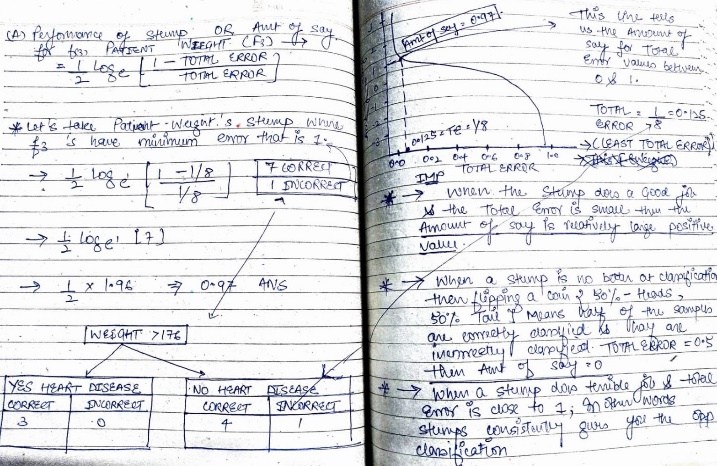 (A) Performance of Stump OR Amt of say
for f3, PATIENT WEIGHT (F3) →
= 1/2 loge [ 1 - TOTAL ERROR / TOTAL ERROR ]
* Let's take Patient-Weight's Stump where
f3 's have minimum error that is 1.
→ 1/2 loge [ 1 - 1/8 / 1/8 ]
7 CORRECT
1 INCORRECT
→ 1/2 loge [7]
→ 1/2 x 1.96 ⇒ 0.97 ANS
WEIGHT >176
YES HEART DISEASE
CORRECT INCORRECT
3 0
NO HEART DISEASE
CORRECT INCORRECT
4 1
Amt of say = 0.97
0.125 = TE = 1/8
0.0 0.2 0.4 0.6 0.8 1.0
TOTAL ERROR
→ This line tells
us the Amount of
say for Total
Error values between
0 & 1.
TOTAL ERROR = 1/8 = 0.125
→ (LEAST TOTAL ERROR)
IMP
* → When the Stump does a Good job
& the Total Error is small then the
Amount of say is relatively large positive
value.
* → When a stump is no better at classification
then flipping a coin { 50% - Heads,
50% Tail } Means half of the samples
are correctly classified & half are
incorrectly classified. TOTAL ERROR = 0.5
then Amt of say = 0
* → When a stump does terrible job & total
Error is close to 1; In other words
stumps consistently gives you the opp
classification